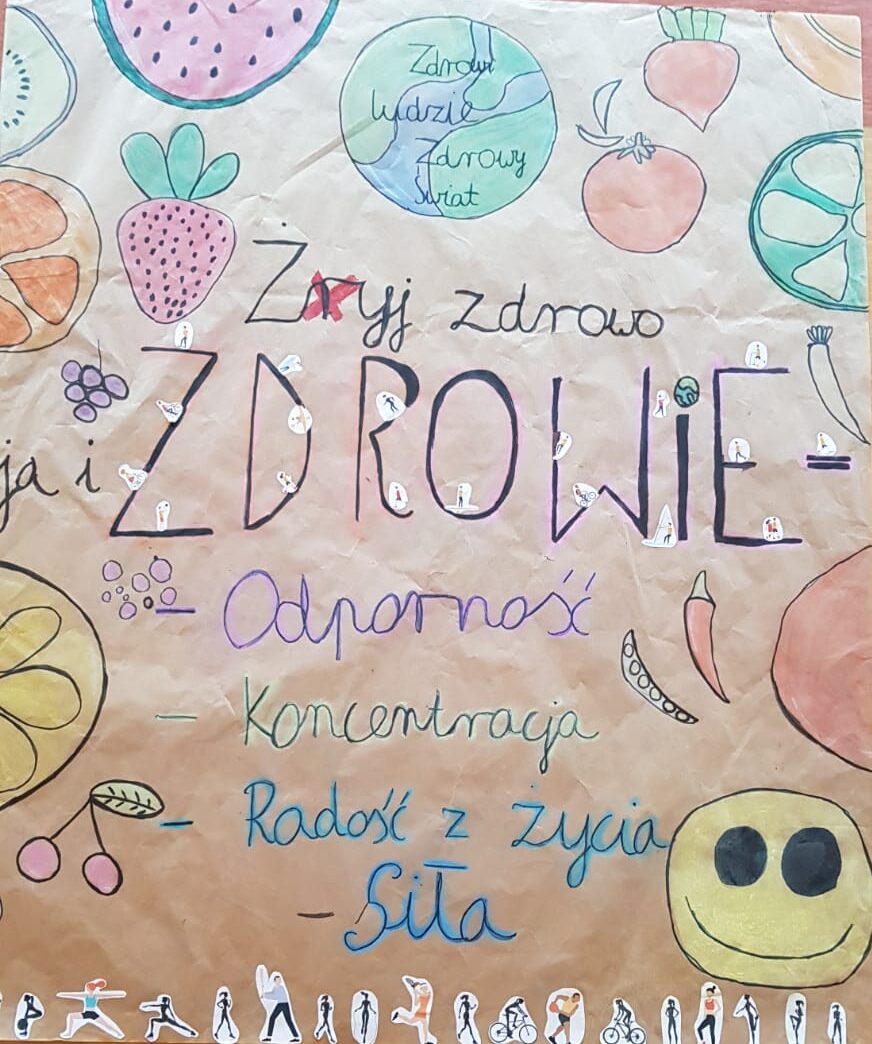 Zdrowi
ludzie
Zdrowy
Świat
Żryj zdrowo
ja i ZDROWiE=
- Odporność
- Koncentracja
- Radość z życia
- Siła